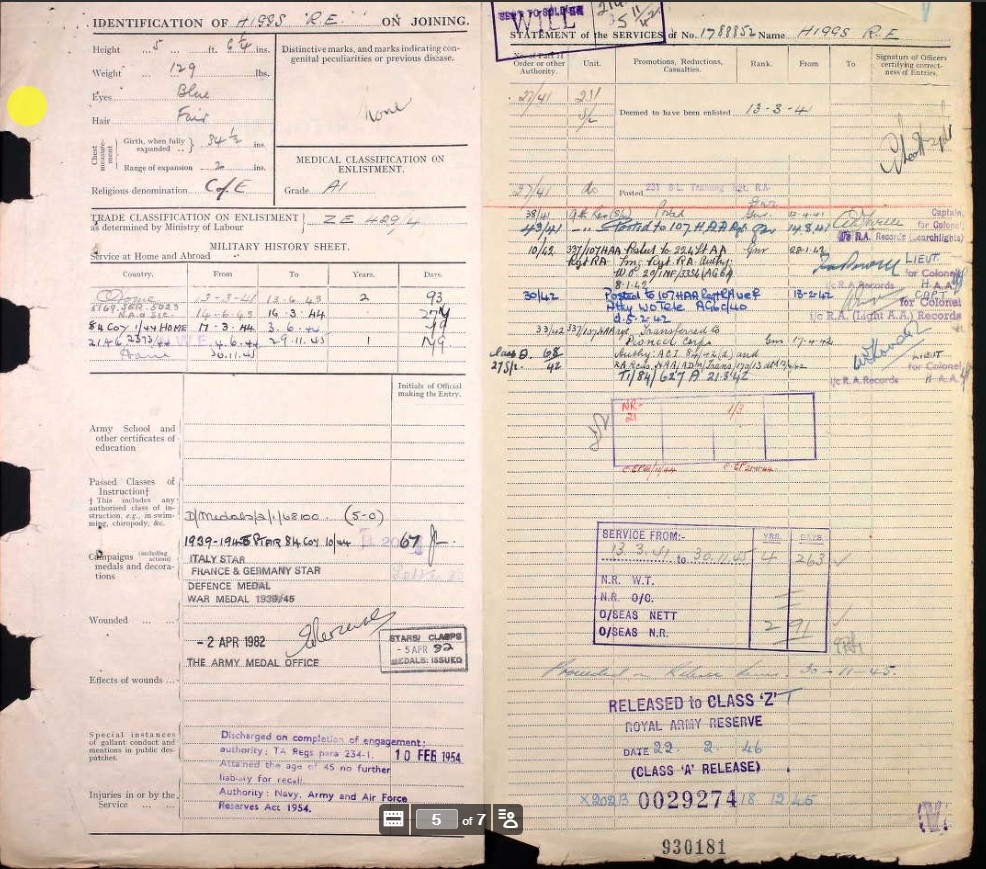 IDENTIFICATION OF HIGGS R.E. ON JOINING.
Height 5 ft. 6¼ ins.
Weight 129 lbs.
Eyes Blue
Hair Fair
Chest measurement
Girth, when fully expanded 34½ ins.
Range of expansion 2 ins.
Religious denomination C of E
Distinctive marks, and marks indicating congenital peculiarities or previous disease.
None
MEDICAL CLASSIFICATION ON ENLISTMENT.
Grade A1
TRADE CLASSIFICATION ON ENLISTMENT
as determined by Ministry of Labour
ZE 429/4
MILITARY HISTORY SHEET.
Service at Home and Abroad
Country. From To Years. Days.
Home 13-3-41 13.6.43 2 93
14-6-43 16.3.44
84 Coy 1/44 HOME 17.3.44 3.6.44 79
4.6.44 29.11.45 1 179
Home 30.11.45
Initials of Official making the Entry.
Army School and other certificates of education
Passed Classes of Instruction†
† This includes any authorised class of instruction, e.g., in swimming, chiropody, &c.
D/Medals/2/1/68100 (5-0)
Campaigns (including actions) medals and decorations
1939-1945 STAR 84 Coy 10/44
ITALY STAR
FRANCE & GERMANY STAR
DEFENCE MEDAL
WAR MEDAL 1939/45
Wounded
- 2 APR 1982
THE ARMY MEDAL OFFICE
STARS/ CLASPS
- 5 APR 82
MEDALS: ISSUED
Effects of wounds
Special instances of gallant conduct and mentions in public despatches.
Discharged on completion of engagement:
authority: TA Regs para 234-1. 10 FEB 1954
Attained the age of 45 no further
liability for recall.
Authority: Navy, Army and Air Force
Reserves Act 1954.
Injuries in or by the Service
SENT TO SOLDIER
WILL
STATEMENT of the SERVICES of No. 1788852 Name HIGGS R.E
No. of Part II Order or other Authority. Unit. Promotions, Reductions, Casualties. Rank. From To Signature of Officers certifying correctness of Entries.
27/41 231 S/L Deemed to have been enlisted 13-3-41
27/41 do Posted 231 S.L. Training Rgt. R.A.
38/41 Posted Gnr.
43/41 Posted to 107 H.A.A Rgt Gnr 14.8.41
Captain,
for Colonel
i/c R.A. Records (Searchlights)
10/42 337/107HAA Rgt RA Posted to 224 Lt AA Gnr
Trng Rgt. RA. Authy:
8-1-42
LIEUT.
for Colonel
i/c R.A. Records H.A.A.
30/42 Posted to 107 HAA Regt 13-2-42
d. 5.2.42
CAPT.
for Colonel
i/c R.A. (Light A.A.) Records
33/42 337/107HAA Rgt. Transferred to
Pioneer Corps Gnr 17-4-42
Authy: A.C.I. and
T1/84/627A 21.3.42
LIEUT
for Colonel
i/c R.A. Records H.A.A.
NR-21 1/3
SERVICE FROM:- YRS. DAYS.
13.3.41 to 30.11.45 4 263
N.R. W.T.
N.R. O/C.
O/SEAS NETT
O/SEAS N.R. 2 91
Proceeded on Release Leave. 30-11-45.
RELEASED to CLASS 'Z' T
ROYAL ARMY RESERVE
DATE 22. 2. 46
(CLASS 'A' RELEASE)
X202B 0029274 18 12 45
930181
5 of 7